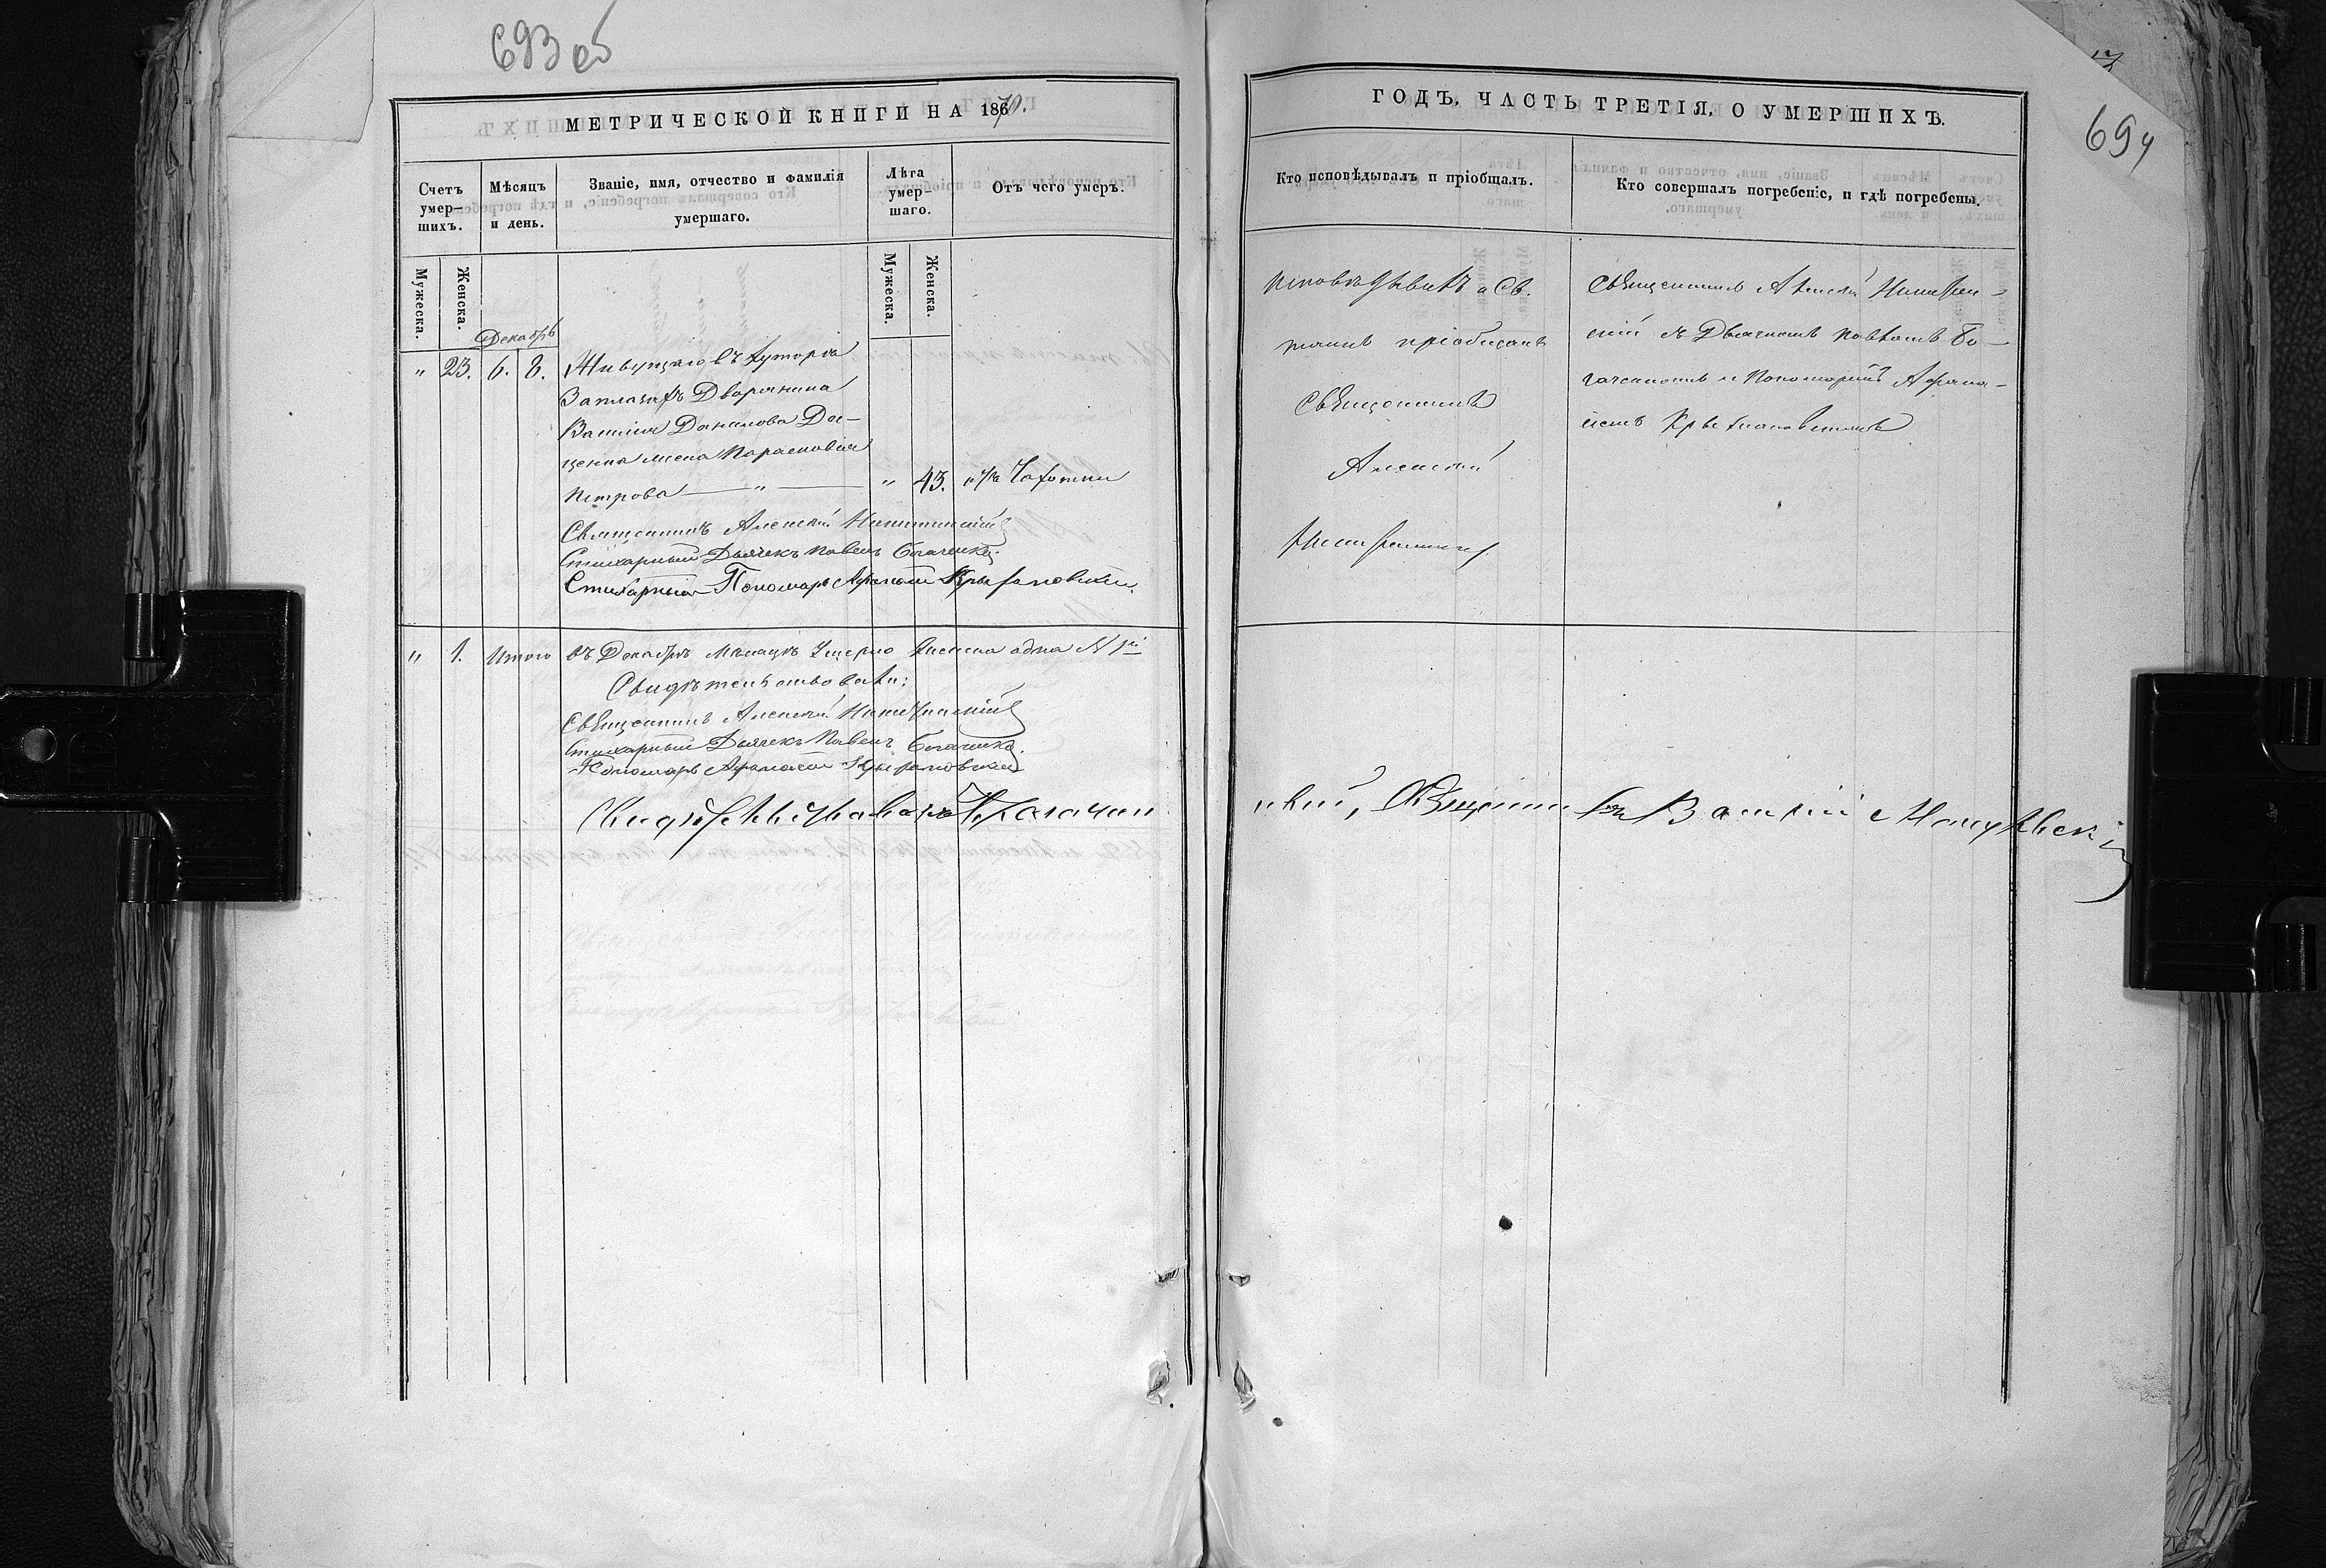 693 об
МЕТРИЧЕСКОЙ КНИГИ НА 1870.
Счетъ умер-шихъ.
Мѣсяцъ и день.
Званіе, имя, отчество и фамилія умершаго.
Лѣта умер-шаго.
Отъ чего умеръ.
Мужеска.
Женска.
Мужеска.
Женска.
Декабрь
" 23. 6. 8. Живущаго въ хуторѣ
Дворянина
Василія Данилова До-
ценка жена Парасковія
Петрова — " — " 43. отъ Чахотки
Священникъ Алексѣй Никитинскій
Стихарный Дьячекъ Павелъ Богаченко.
Стихарный Пономарь Афанасій Крыжановскій.
" 1. Итого въ Декабрѣ Мѣсяцѣ Умерло женска одна № 1й
Свидѣтельствовали:
Священникъ Алексѣй Никитинскій
Стихарный Дьячекъ Павелъ Богаченко.
Пономарь Афанасій Крыжановскій
Свидѣтельствовалъ
ГОДЪ, ЧАСТЬ ТРЕТІЯ, О УМЕРШИХЪ.
694
Кто исповѣдывалъ и пріобщалъ.
Кто совершалъ погребеніе, и гдѣ погребены.
Исповѣдывалъ и Св.
пріобщалъ
Священникъ
Алексѣй
Никитинскій
Священникъ Алексѣй Никитин-
скій съ Дьячкомъ Павломъ Бо-
гаченкомъ и Пономаремъ Афана-
сіемъ Крыжановскимъ
Священникъ Василій